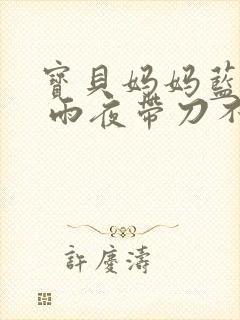 寶貝妈妈藍
雨夜帶刀不
許慶濤